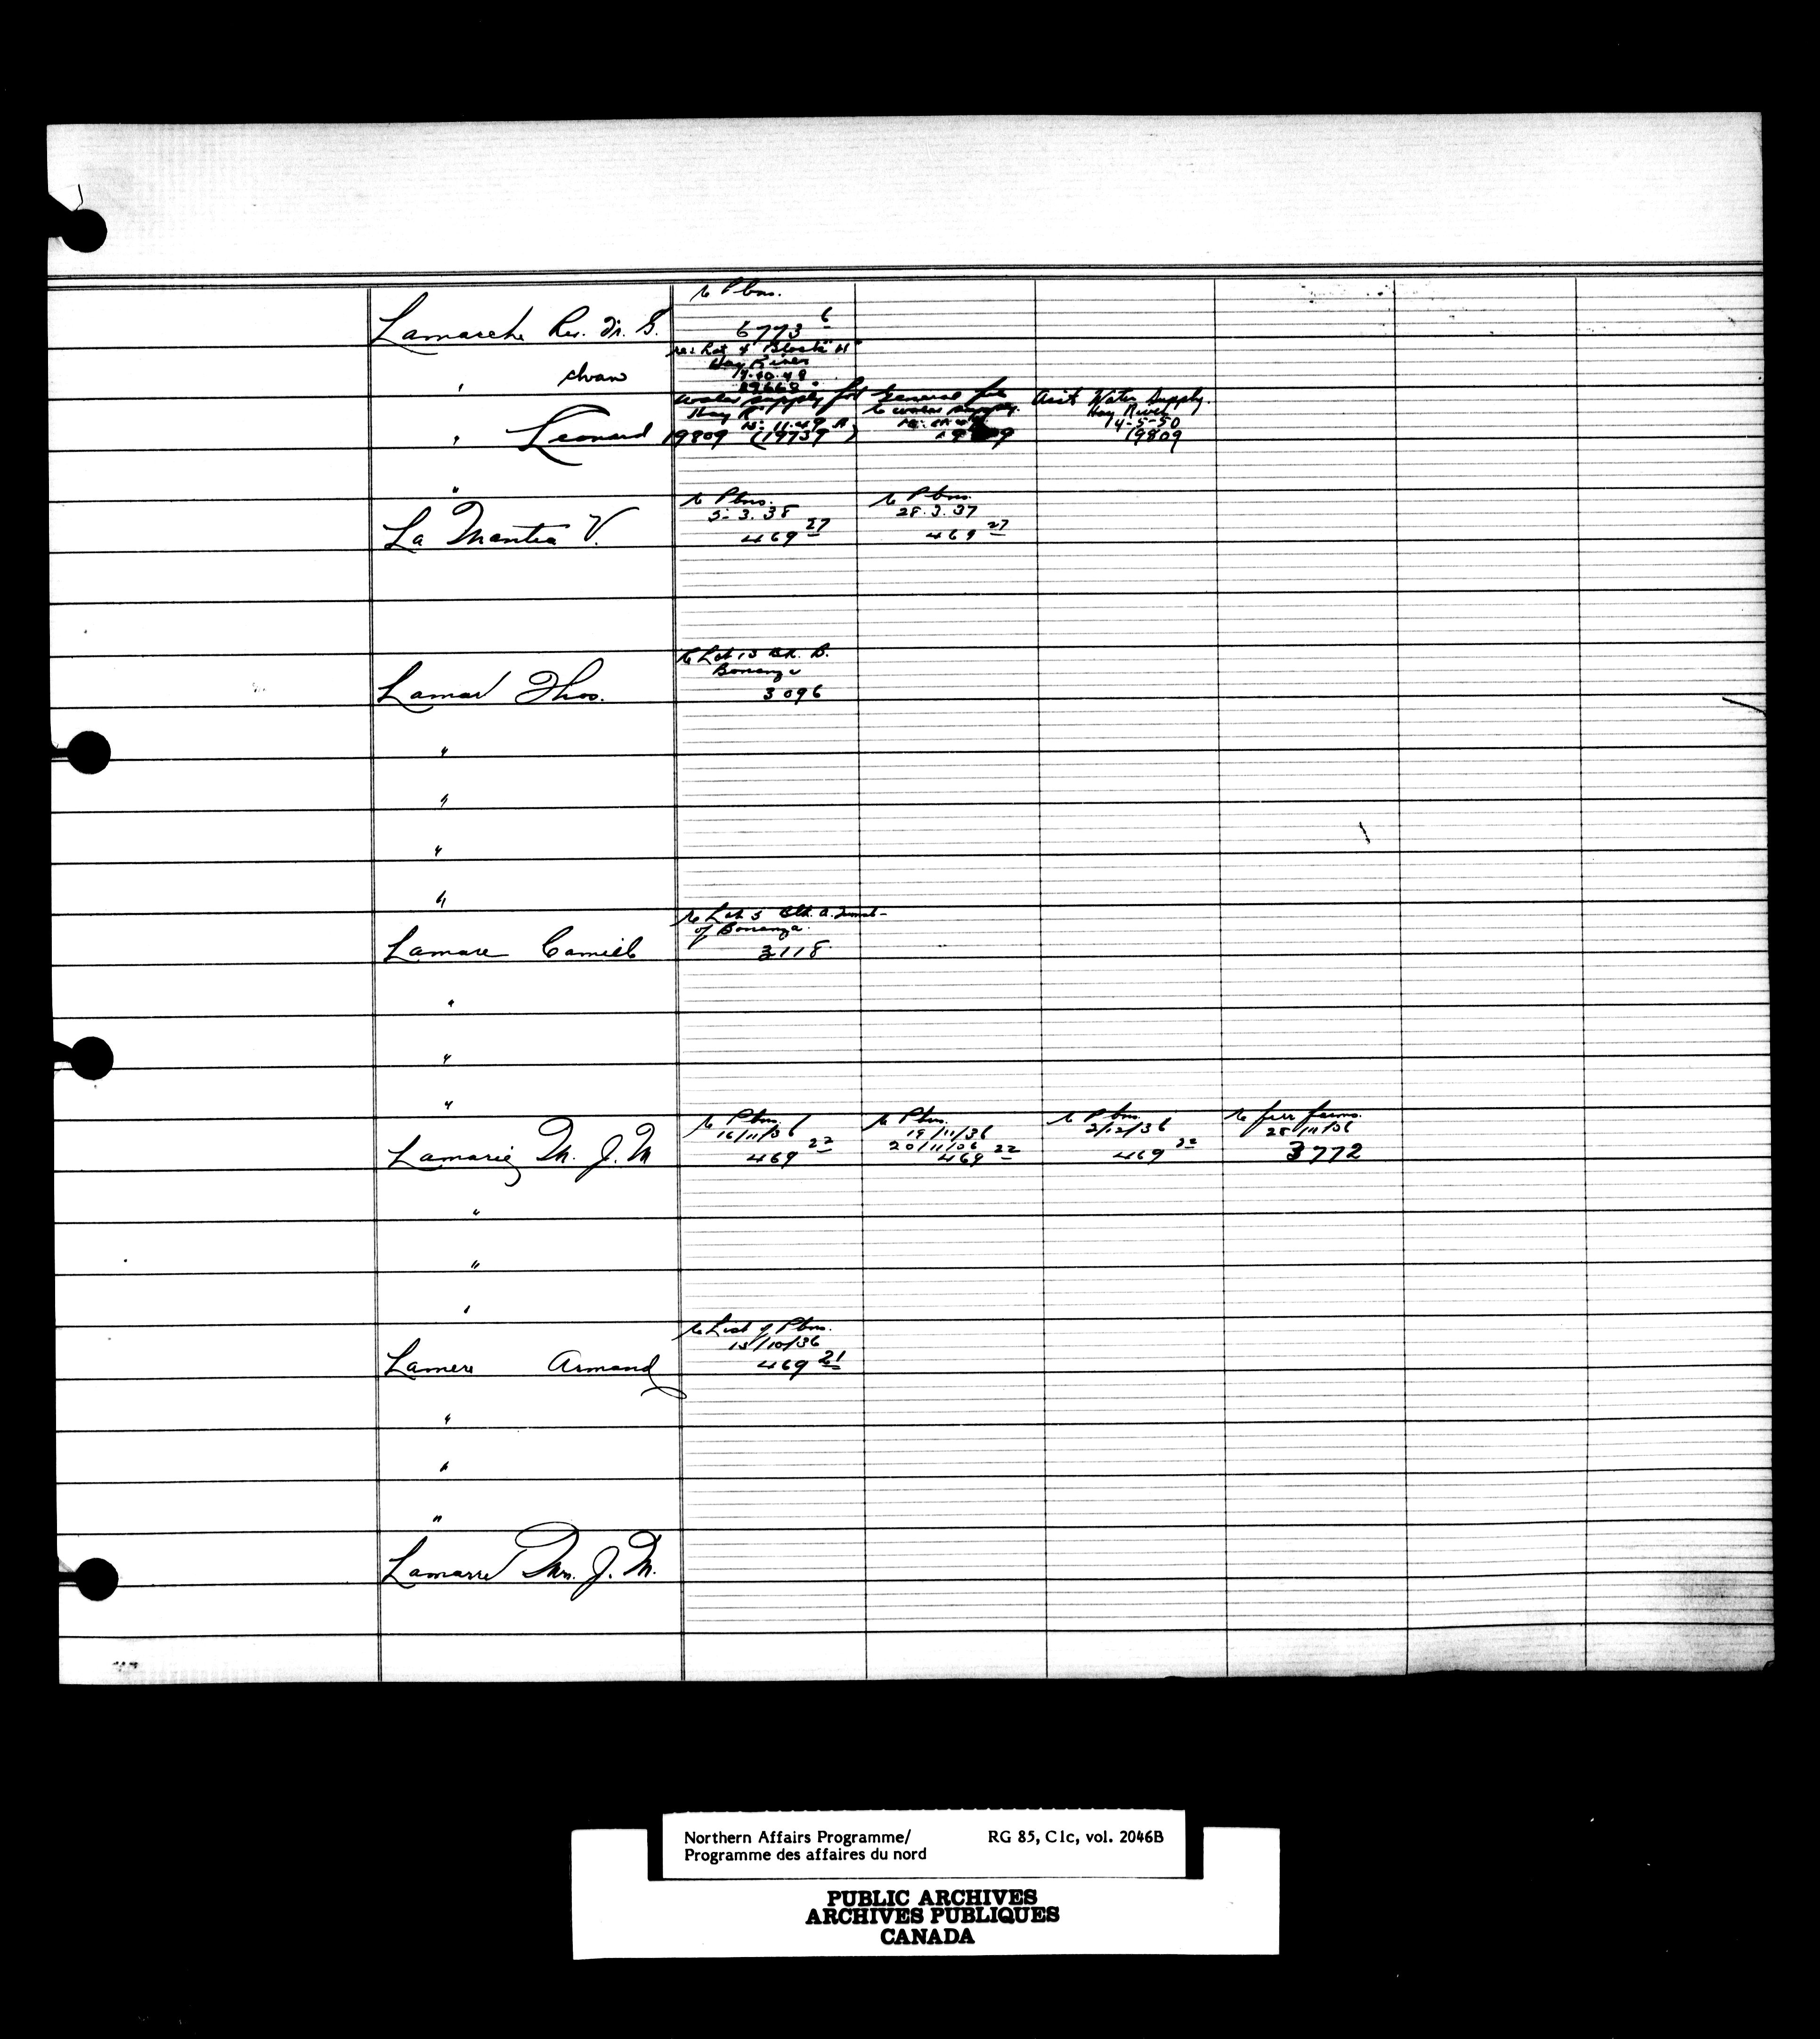 re Pbms.
Lamarche Rev. Fr. G. 6773 6
re: Lot 4 Block "H"
Hay River
" Ivan 19.10.48
water supply for General file Asst Water Supply.
Hay R. re water supply. Hay River
14-5-50
" Leonard 19809 (19737) 19809
"
re Pbms. re Pbms.
5.3.38 28.3.37
La Mantia V. 469 27 469 27
re Lot 13 Blk. B.
Bonanza
Lamar Thos. 3096
"
"
"
"
re Lot 5 Blk. A.
of Bonanza.
Lamare Camiel 3118
"
"
"
re Pbms. re Pbms. re Pbms. re fur farms.
16/11/36 19/11/36 2/12/36 25/11/36
20/11/36
Lamarie M. J. M 469 22 469 22 469 22 3772
"
"
"
re List of Pbms.
15/10/36
Lamere Armand 469 21
"
"
"
Lamarre Mrs. J. M.
Northern Affairs Programme/ RG 85, C1c, vol. 2046B
Programme des affaires du nord
PUBLIC ARCHIVES
ARCHIVES PUBLIQUES
CANADA